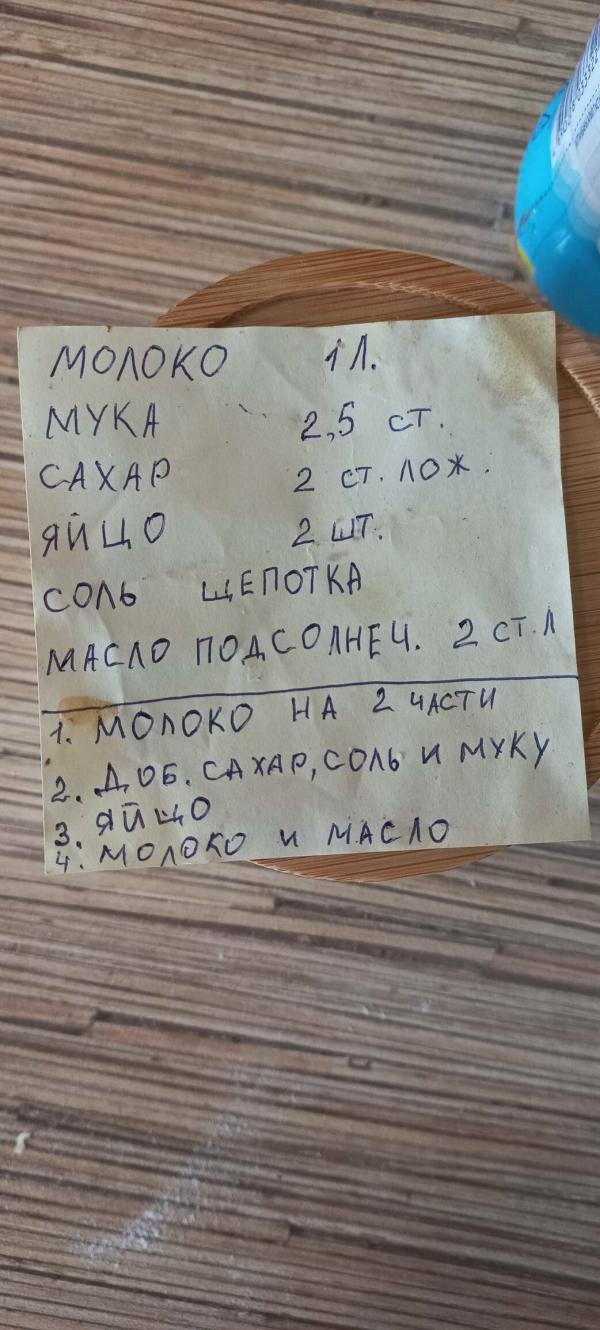 МОЛОКО 1 Л.
МУКА 2,5 СТ.
САХАР 2 СТ. ЛОЖ.
ЯЙЦО 2 ШТ.
СОЛЬ ЩЕПОТКА
МАСЛО ПОДСОЛНЕЧ. 2 СТ.Л
1. МОЛОКО НА 2 ЧАСТИ
2. ДОБ. САХАР, СОЛЬ И МУКУ
3. ЯЙЦО
4. МОЛОКО И МАСЛО